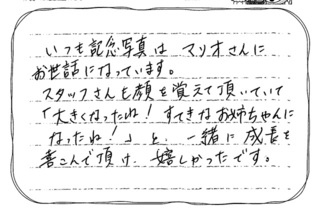 いつも記念写真は マリオさんに
お世話になっています。
スタッフさんも顔を覚えて頂いていて
「大きくなったね！すてきなお姉ちゃんに
なったね！」と、一緒に成長を
喜こんで頂け、嬉しかったです。